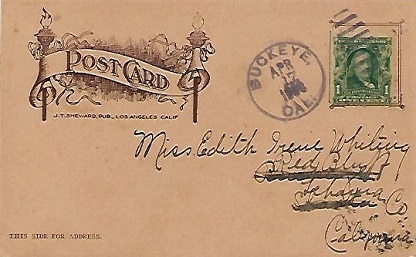 POST CARD
J.T. SHEWARD, PUB., LOS ANGELES, CALIF
BUCKEYE,
APR
17
CAL.
1
Miss Edith Irene Whiting
Red Bluff
Tehama Co
California
THIS SIDE FOR ADDRESS.